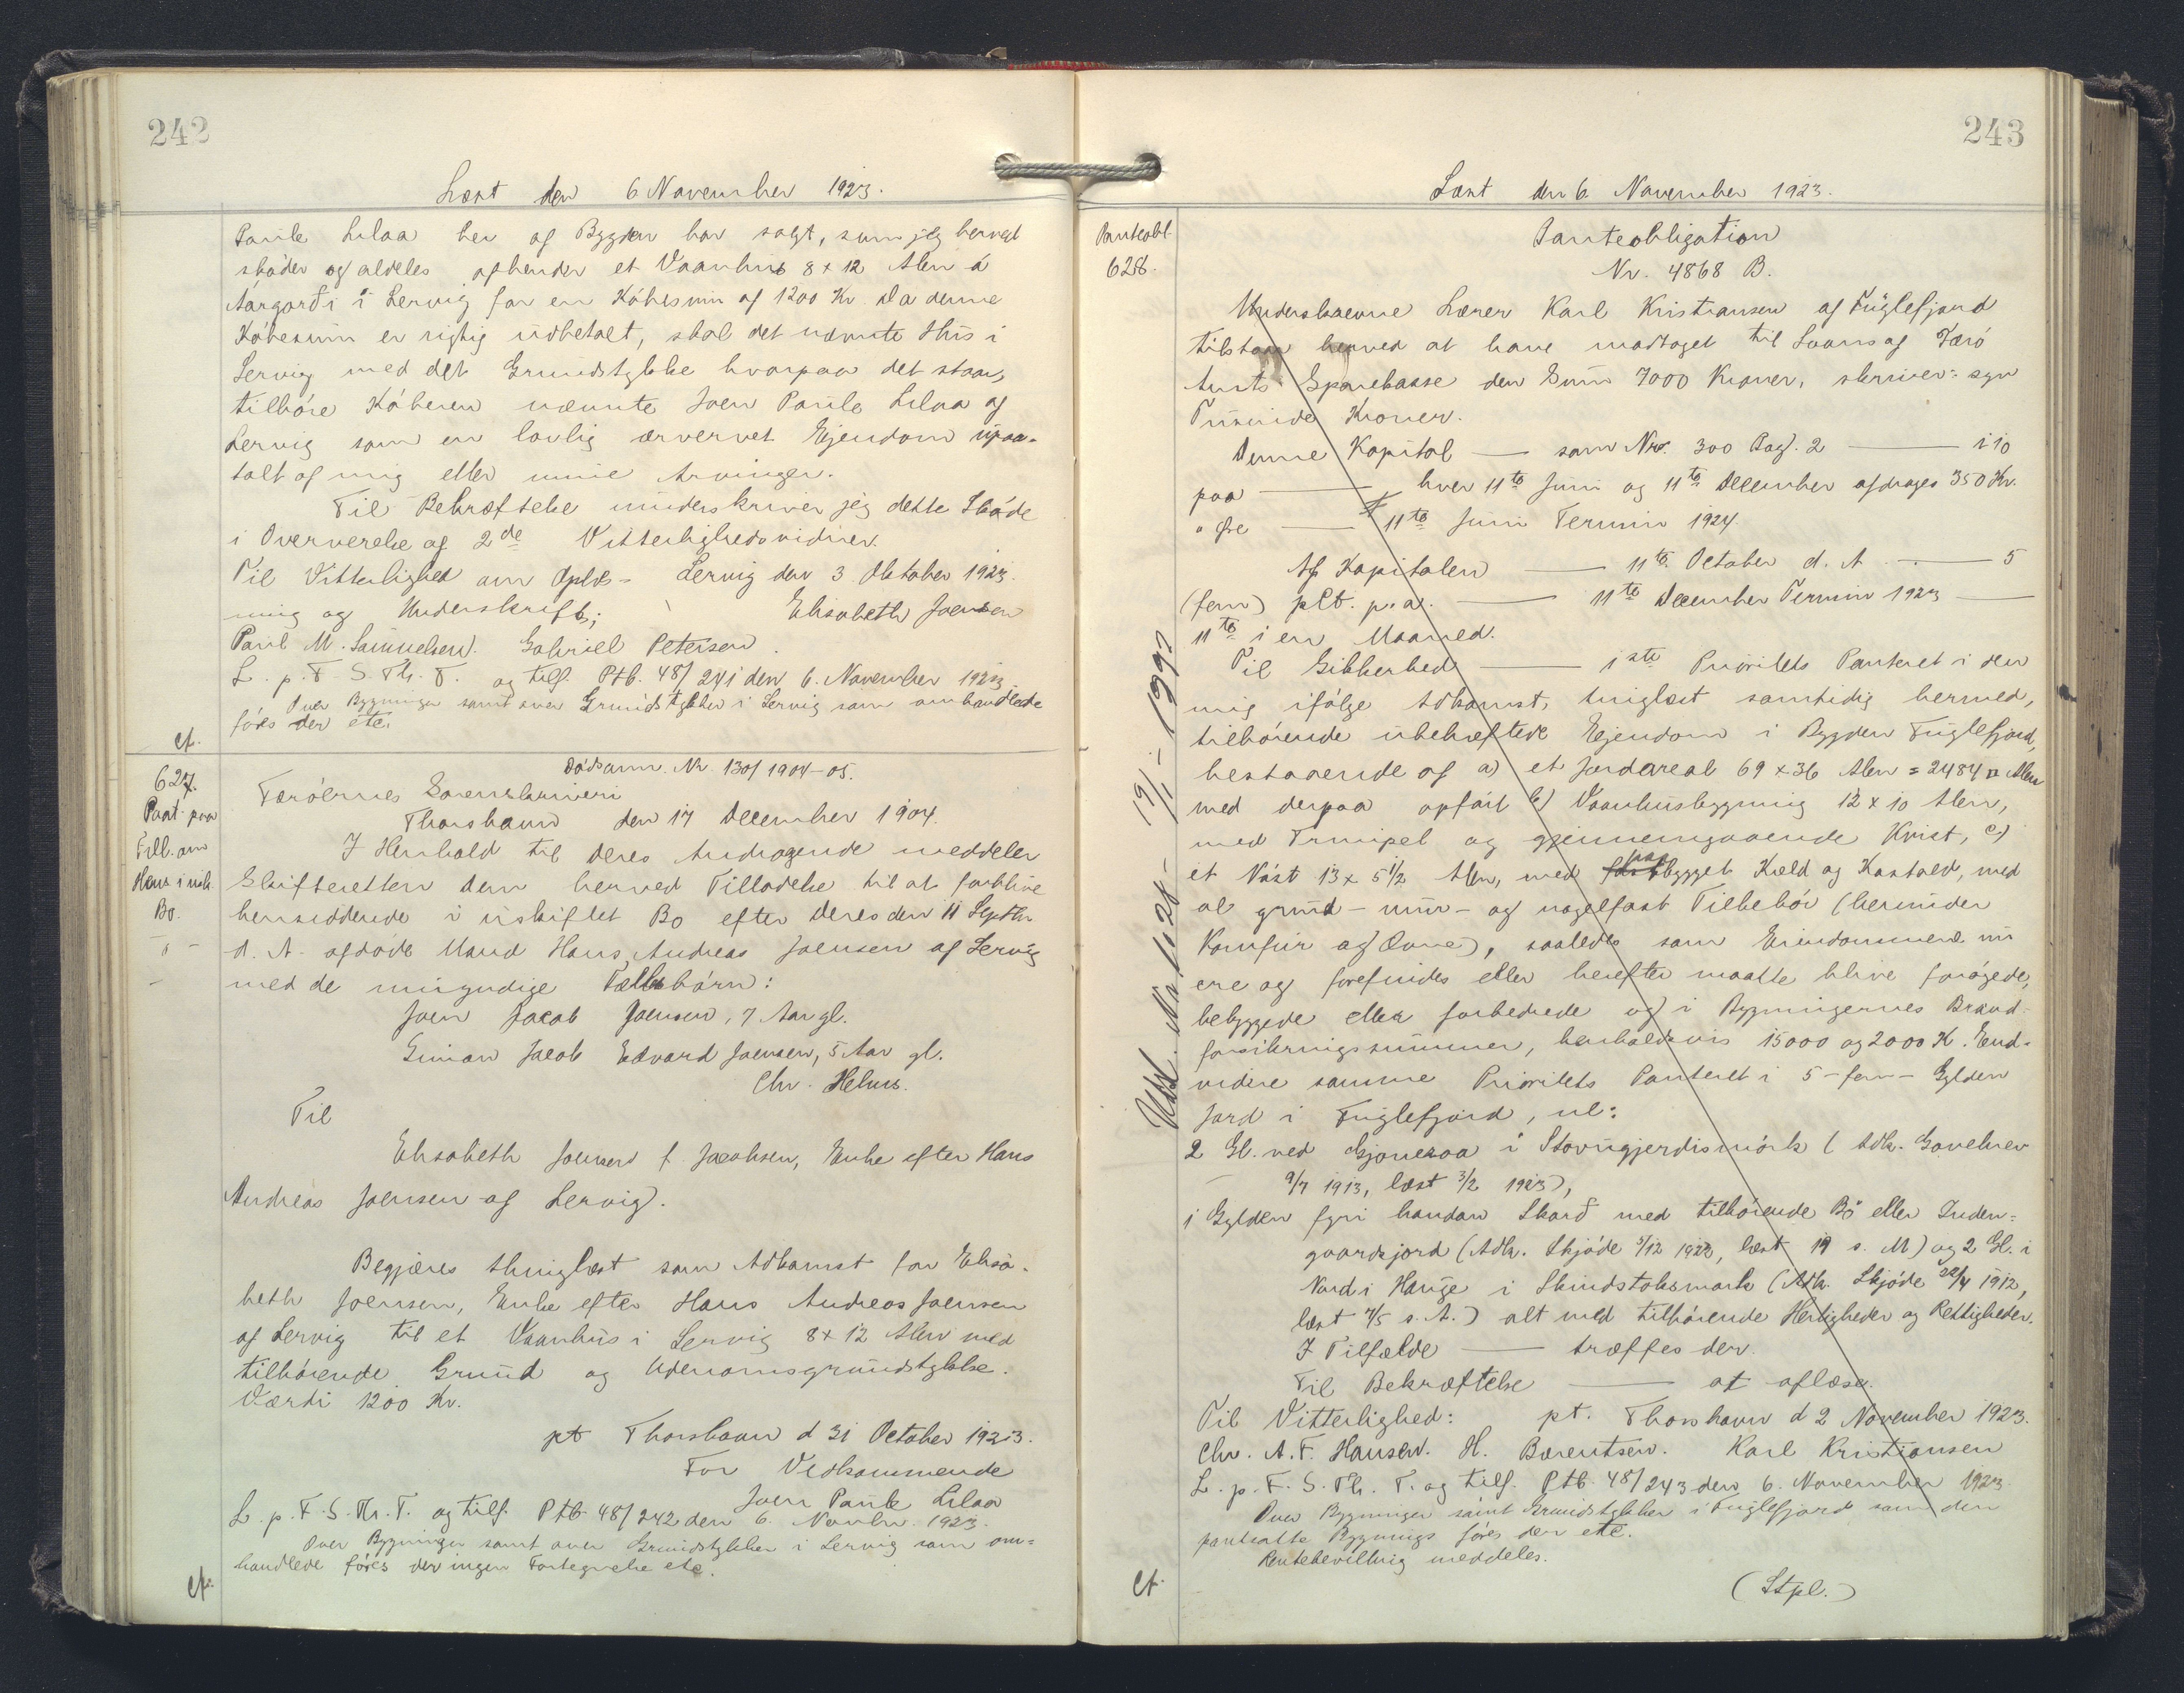 242
Læst den 6 November 1923.
Paule Lilaa her af Bygden har solgt, som jeg herved
skøder og aldeles afhender et Vaanhus 8 x 12 Alen á
Áargarði i Lervig for en Købesum af 1200 Kr. Da denne
Købesum er rigtig udbetalt, skal det nævnte Hus i
Lervig med det Grundstykke hvorpaa det staar,
tilhøre Køberen nævnte Joen Paule Lilaa af
Lervig som en lovlig erhvervet Ejendom upaa-
talt af mig eller mine Arvinger.
Til Bekræftelse underskriver jeg dette Skøde
i Overværelse af 2de Vitterlighedsvidner.
Til Vitterlighed om Oplæs- Lervig den 3 Oktober 1923.
ning og Underskrift; Elisabeth Joensen
Paul M. Samuelsen. Gabriel Petersen.
L. p. F. S. Th. T. og tilf. Ptb. 48/241 den 6. November 1923.
Over Bygninger samt over Grundstykker i Lervig som omhandlede
føres der etc.
ct.
627.
Paat. paa
Till. om
Hens. i usk.
Bo.
Dødsanm. Nr. 130/1904-05.
Færøernes Sorenskriveri
Thorshavn den 17 December 1904.
I Henhold til Deres Andragende meddeler
Skifteretten dem herved Tilladelse til at forblive
hensiddende i uskiftet Bo efter Deres den 11 Septbr
d. A. afdøde Mand Hans Andreas Joensen af Lervig
med de umyndige Fællesbørn:
Joen Jacob Joensen, 7 Aar gl.
Simon Jacob Edvard Joensen, 5 Aar gl.
Chr. Helms.
Til
Elisabeth Joensen f. Jacobsen, Enke efter Hans
Andreas Joensen af Lervig.
Begjæres thinglæst som Adkomst for Elisa-
beth Joensen, Enke efter Hans Andreas Joensen
af Lervig til et Vaanhus i Lervig 8 x 12 Alen med
tilhørende Grund og Udenomsgrundstykke.
Værdi 1200 Kr.
pt Thorshavn d 31 October 1923.
For Vedkommende
Joen Paule Lilaa
L. p. F. S. Th. T. og tilf. Ptb. 48/242 den 6. Novbr. 1923.
Over Bygninger samt over Grundstykker i Lervig som om-
handlede føres der ingen Fortegnelse etc.
ct.
243
Læst den 6. November 1923.
Panteobl.
628.
Panteobligation
Nr. 4868 B.
Underskrevne Lærer Karl Kristiansen af Fuglefjord
tilstaar herved at have modtaget til Laans af Færø
Amts Sparekasse den Sum 7000 Kroner, skriver: syv
Tusinde Kroner.
Denne Kapital — som Nr. 300 Pag. 2 — i 10
paa — hver 11te Juni og 11te December afdrages 350 Kr.
0 Øre — 11te Juni Termin 1924.
Af Kapitalen — 11te October d. A. — 5
(fem) pCt. p. a. — 11te December Termin 1923 —
11te i en Maaned.
Til Sikkerhed — 1ste Prioritets Panteret i den
mig ifølge Adkomst, tinglæst samtidig hermed,
tilhørende ubehæftede Ejendom i Bygden Fuglefjord,
bestaaende af a) et Jordareal 69 x 36 Alen = 2484 □ Alen
med derpaa opført b) Vaanhusbygning 12 x 10 Alen,
med Trempel og gjennemgaaende Kvist, c)
et Nøst 13 x 5 1/2 Alen, med paabygget Kæld og Kostald, med
al grund- mur- og nagelfast Tilbehør (herunder
Komfur og Ovne), saaledes som Ejendommene nu
ere og forefindes eller herefter maatte blive forøgede,
bebyggede eller forbedrede og i Bygningernes Brand-
forsikringssummer, henholdsvis 15000 og 2000 K. End-
videre samme Prioritets Panteret i 5 - fem - Gylden
Jord i Fuglefjord, nl:
2 Gl. ved Gjoneraa i Stovugjerdismörk (Adk. Gavebrev
9/7 1913, læst 3/2 1923),
1 Gylden fyri handan Skarð med tilhørende Bø eller Inden-
gaardsjord (Adk. Skjøde 5/12 1922, læst 19 s. M) og 2 Gl. i
Nord i Hauge i Skindstoksmark (Adk. Skjøde 22/4 1912,
læst 7/5 s. A.) alt med tilhørende Herligheder og Rettigheder.
I Tilfælde — træffes der.
Til Bekræftelse — at aflæse.
Til Vitterlighed: pt. Thorshavn d 2 November 1923.
Chr. A. F. Hansen. H. Bærentsen. Karl Kristiansen
L. p. F. S. Th. T. og tilf. Ptb. 48/243 den 6. November 1923.
Over Bygninger samt Grundstykker i Fuglefjord som den
pantsatte Bygnings føres der etc.
Rentebevilling meddeles.
ct.
(Stpl.)
Udsl. No 1628 - 19/1 - 1993